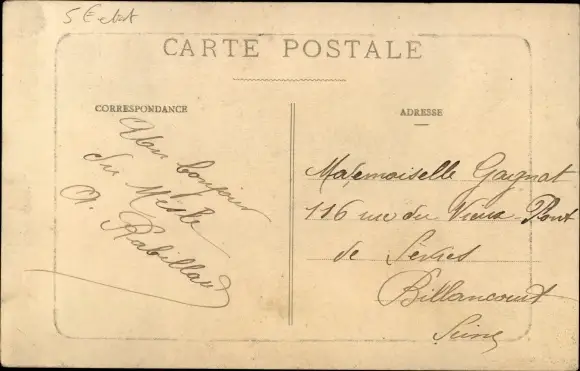 5 € etat
CARTE POSTALE
CORRESPONDANCE
Un bonjour
du Mesle
A. Rabillaud
ADRESSE
Mademoiselle Gagnat
116 rue du Vieux Pont
de Sèvres
Billancourt
Seine